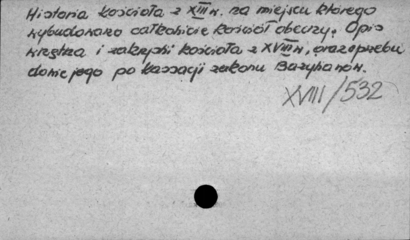 Historia kościoła z XIII w. na miejscu którego
wybudowano całkowicie kościół obecny. Opis
wnętrza i zakrystii kościoła z XVIII w. oraz
donie jego po kassacji zakonu Bazylianów.
XVIII/532